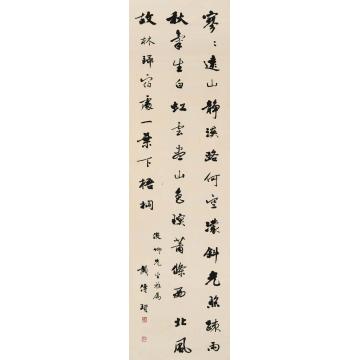 寥〻遠山靜溪路何空濛斜光照疎雨
秋氣生白虹雲盡山色暝蕭條西北風
故林歸宿處一葉下梧桐
卿先生雅屬
戴傳賢